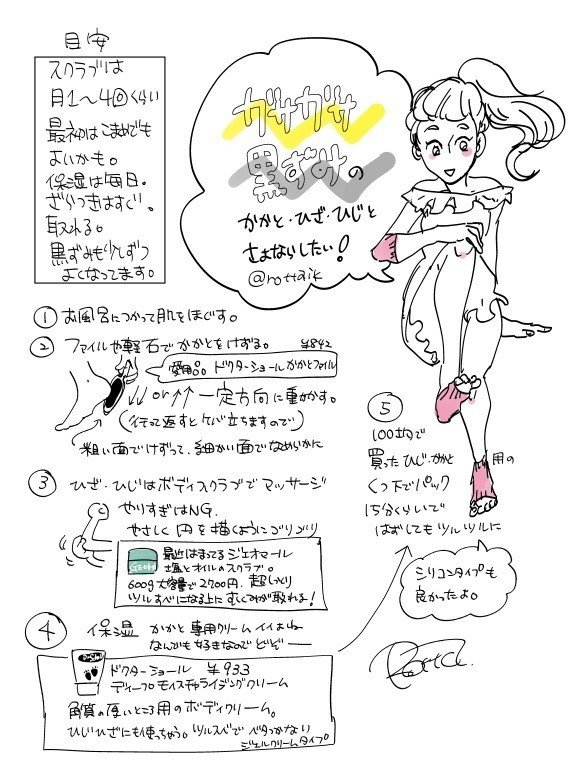 目安
スクラブは
月1〜4回くらい
最初はこまめでも
よいかも。
保湿は毎日。
ざらつきはすぐ
取れる。
黒ずみも少しずつ
よくなってます。
ガサガサ
黒ずみの
かかと・ひざ・ひじと
さよならしたい!
@rottaik
① お風呂につかって肌をほぐす。
② ファイルや軽石でかかとをけずる。 ¥842
愛用品 ドクターショールかかとファイル
↓↓ or ↑↑ 一定方向に動かす。
(行って返すとケバ立ちますので)
粗い面でけずって、細かい面でなめらかに
③ ひざ・ひじはボディスクラブでマッサージ
やりすぎはNG.
やさしく円を描くようにゴリゴリ
GEAM
最近はまってるジェオマール
塩とオイルのスクラブ。
600g大容量で2700円. 超しっとり
ツルすべになる上にむくみが取れる!
④ 保湿 かかと専用クリームイイよね
なんでも好きなのでどぞー
ドクターショール ¥933
ディープモイスチャライジングクリーム
角質の厚いところ用のボディクリーム。
ひじひざにも使っちゃう。ツルスベでベタつかない
ジェルクリームタイプ
⑤
100均で
買ったひじ・かかと用の
くつ下でパック
15分くらいで
はずしてもツルツルに
シリコンタイプも
良かったよ。